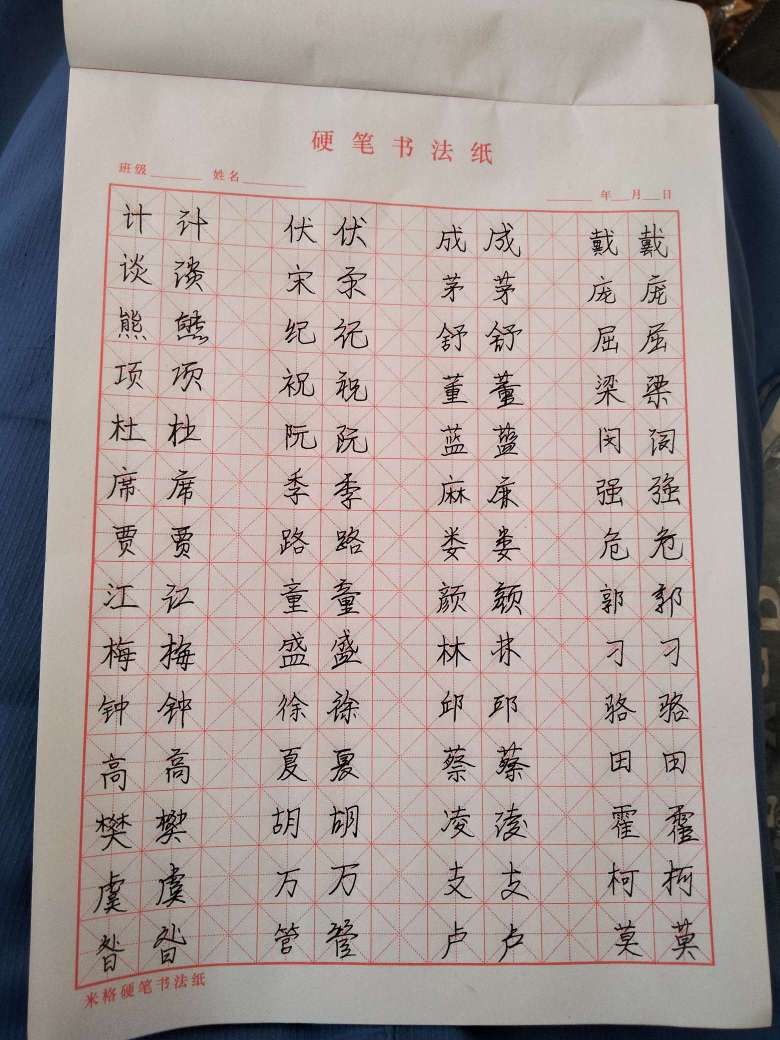 硬笔书法纸
班级 姓名
年 月 日
计 计 伏 伏 成 成 戴 戴
谈 谈 宋 宋 茅 茅 庞 庞
熊 熊 纪 纪 舒 舒 屈 屈
项 项 祝 祝 董 董 梁 梁
杜 杜 阮 阮 蓝 蓝 闵 闵
席 席 季 季 麻 麻 强 强
贾 贾 路 路 娄 娄 危 危
江 江 童 童 颜 颜 郭 郭
梅 梅 盛 盛 林 林 刁 刁
钟 钟 徐 徐 邱 邱 骆 骆
高 高 夏 夏 蔡 蔡 田 田
樊 樊 胡 胡 凌 凌 霍 霍
虞 虞 万 万 支 支 柯 柯
昝 昝 管 管 卢 卢 莫 莫
米格硬笔书法纸